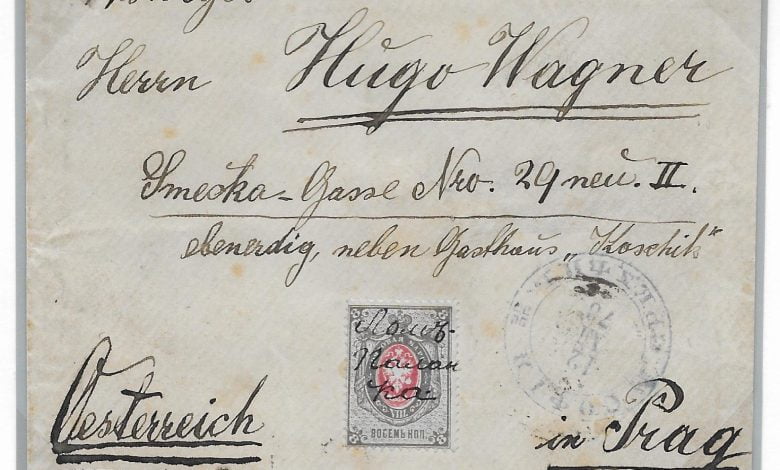 Herrn Hugo Wagner
Smecka-Gasse Nro. 29 neu. II.
ebenerdig, neben Gasthaus „Koschik“
Ломъ-
Палан
ка
VIII.
ВОСЕМЬ КОП.
Oesterreich
in Prag